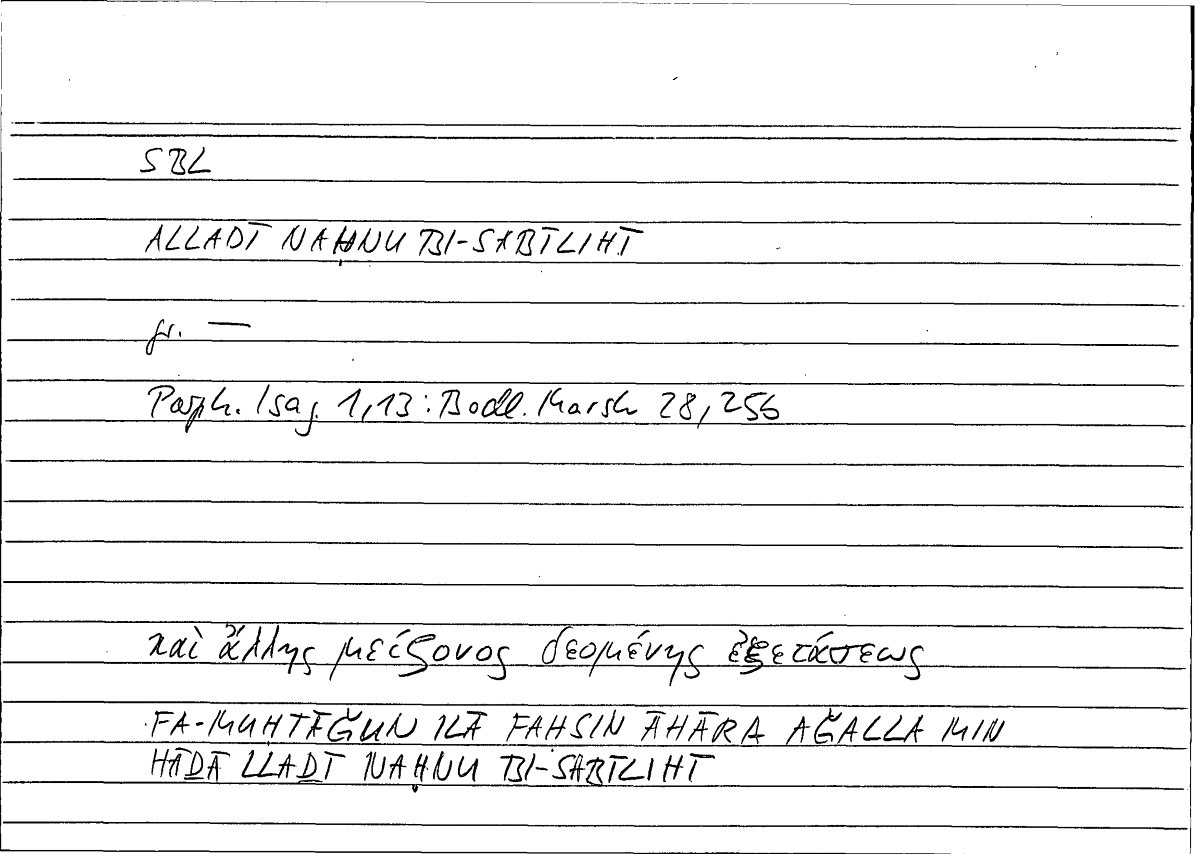 SBL
ALLADĪ NAḤNU BI-SABĪLIHĪ
gr. —
Porph. Isag. 1,13 : Bodl. Marsh 28,25b
καὶ ἄλλης μείζονος δεομένης ἐξετάσεως
FA-MUḤTĀǦUN ILĀ FAHSIN ĀHĀRA AǦALLA MIN
HĀḎĀ LLAḎĪ NAḤNU BI-SABĪLIHĪ